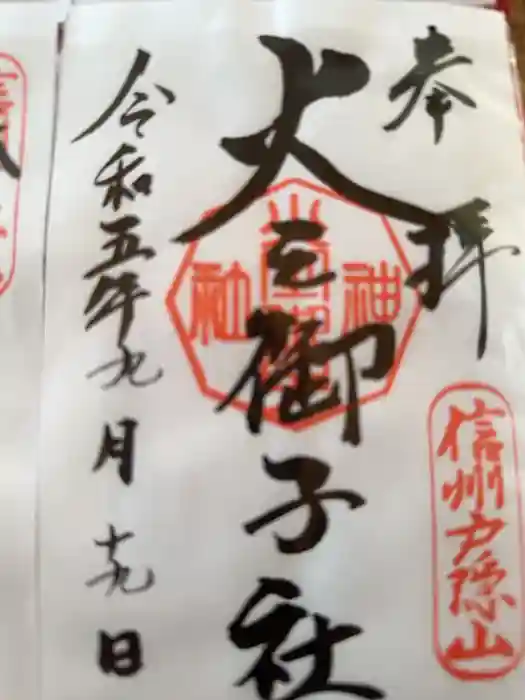 奉拝
信州戸隠山
火之御子社
神社
令和五年九月十九日